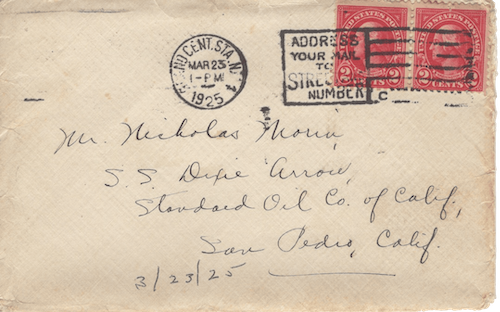 GRAND CENT. STA. N.Y.
MAR 23
1-PM
1925
ADDRESS
YOUR MAIL
TO
STREET
NUMBER
UNITED STATES POSTAGE
2 CENTS 2
UNITED STATES POSTAGE
2 CENTS 2
Mr. Nicholas Morin,
S. S. Dixie Arrow,
Standard Oil Co. of Calif.,
San Pedro, Calif.
3/23/25